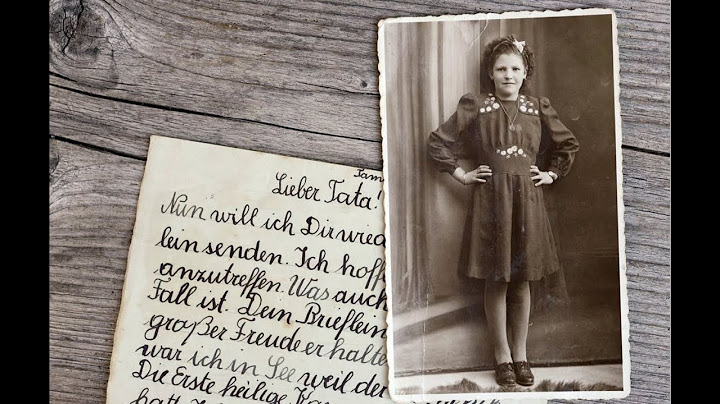 Lieber Tata!
Nun will ich Dir wied
lein senden. Ich hoff
anzutreffen. Was auch
Fall ist. Dein Brieflein
großer Freude erhalte
war ich in See weil der
Die Erste heilige